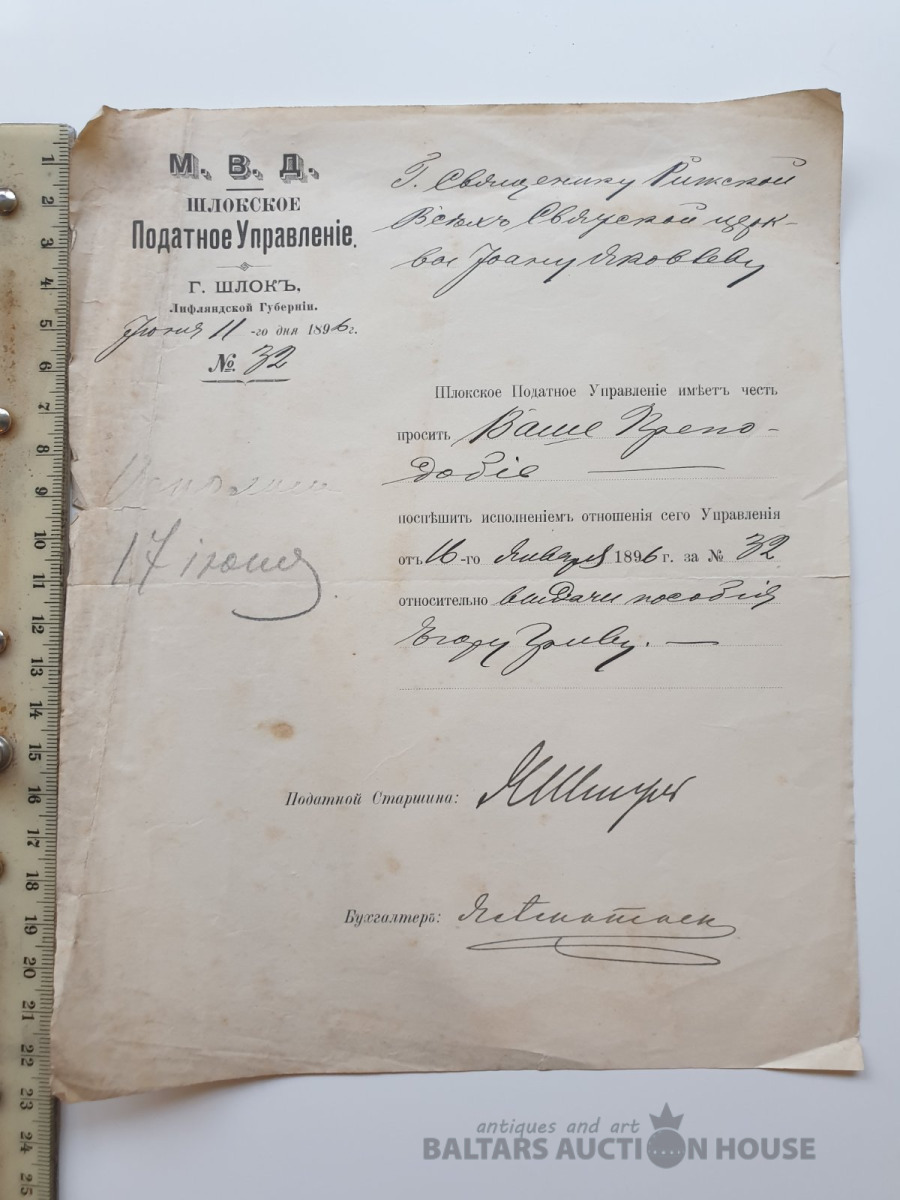 М. В. Д.
ШЛОКСКОЕ
Податное Управленіе.
Г. ШЛОКЪ,
Лифляндской Губерніи.
Іюня 11 -го дня 1896 г.
№ 32
Г. Священнику Рижской
Всѣхъ Святской церк-
ви Іоану Яковлеву
Шлокское Податное Управленіе имѣетъ честь
просить Ваше Препо-
добіе
поспѣшить исполненіемъ отношенія сего Управленія
отъ 16-го Января 1896 г. за № 32
относительно выдачи пособія
Егору
17 іюня
Податной Старшина:
Бухгалтеръ:
antiques and art
BALTARS AUCTION HOUSE
1
2
3
4
5
6
7
8
9
10
11
12
13
14
15
16
17
18
19
20
21
22
23
24
25